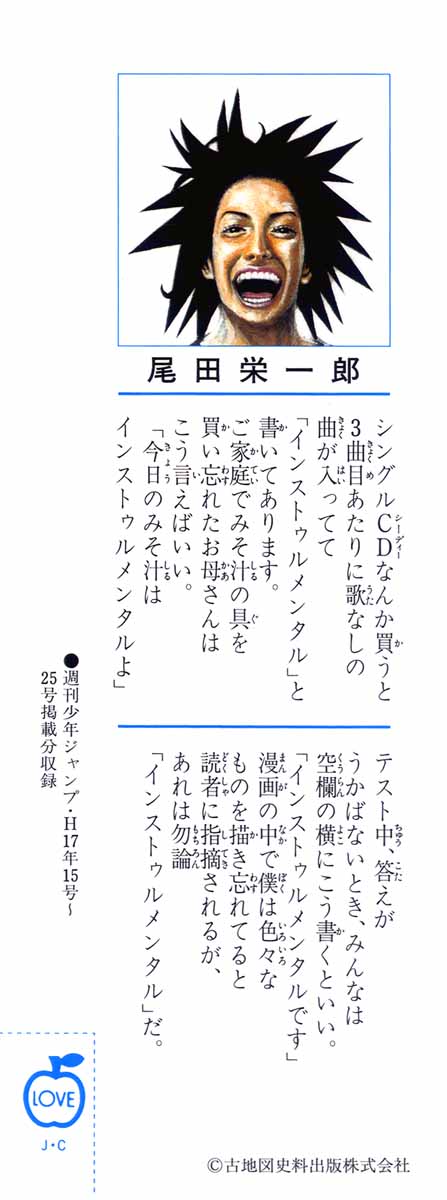 尾田栄一郎
シングルCDなんか買うと
3曲目あたりに歌なしの
曲が入ってて
「インストゥルメンタル」と
書いてあります。
ご家庭でみそ汁の具を
買い忘れたお母さんは
こう言えばいい。
「今日のみそ汁は
インストゥルメンタルよ」
テスト中、答えが
うかばないとき、みんなは
空欄の横にこう書くといい。
「インストゥルメンタルです」
漫画の中で僕は色々な
ものを描き忘れてると
読者に指摘されるが、
あれは勿論
「インストゥルメンタル」だ。
●週刊少年ジャンプ・H17年15号～
25号掲載分収録
LOVE
J・C
©古地図史料出版株式会社